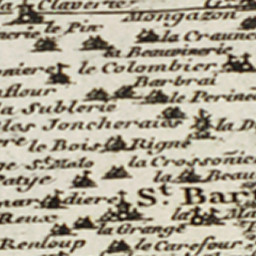 la Claverie
Mongazon
nerie le Pin
la Craunc
la Beauvinerie
niere le Colombier
Barbrai
flour
le Perine
la Sublerie
les Joncheraies
la D
le Bois Rigné
ge St. Malo
la Crossonie
Patye
la Beau
nardiere
St. Bar
Reux
la Ma
la Grange
Renloup
le Carefour